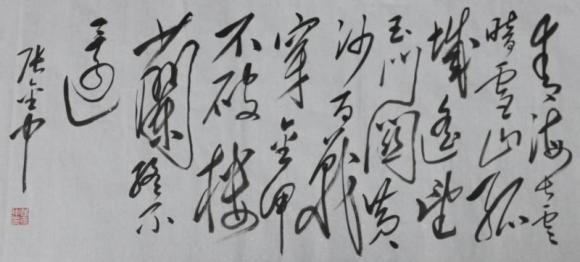 青海长雲
暗雪山孤
城遥望
玉门關黄
沙百戰
穿金甲
不破樓
蘭终不
還
张金中